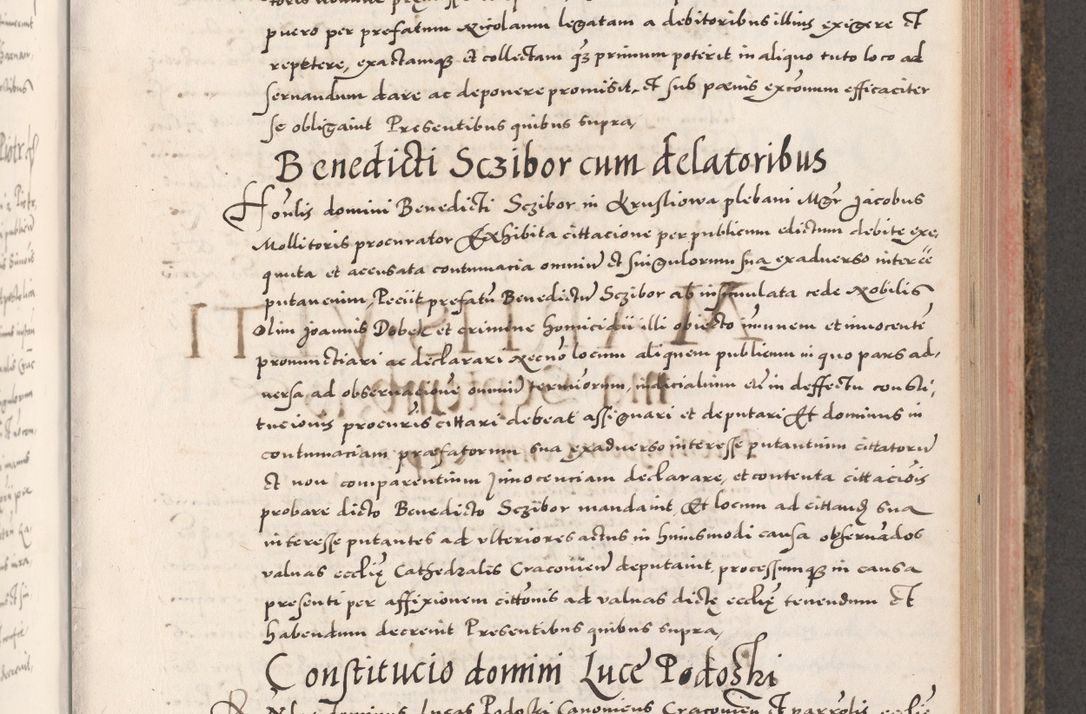 puero per prefatum Nicolaum legatam a debitoribus illius exigere et
repetere, exactamq; et collectam q3 primum poterit in aliquo tuto loco ad
servandum dare ac deponere promisit, et sub pœnis exconum efficaciter
se obligavit Presentibus quibus supra,
Benedicti Sczibor cum delatoribus
Honlis domini Benedicti Sczibor in Krusliowa plebani Mgr Jacobus
Mollitoris procurator Exhibita cittacione per publicum edictum debite exe,
quuta et accusata contumacia omniũ et singulorum sua exadverso inter eẽ
putancium, Peciit prefatũ Benedictũ Sczibor ab insimulata cede Nobilis
olim Joannis Dobek et crimine homicidii illi obiecto immunem et innocentẽ
pronunctiari ac declarari Necnõ locum aliquem publicum in quo pars ad,
versa ad observacionẽ omniũ terminorum, iudicialium etc in deffectu consti,
tucionis procuris cittari debeat assignari et deputari Et dominus in
contumaciam præfatorum sua exadverso interesse putantium cittatorũ
et non comparentium Innocenciam declarare, et contenta cittaciõis
probare dicto Benedicto Sczibor mandavit, Et locum ad cittand sua
interesse putantes ad ulteriores actus in huiusmodi causa observãdos
valvas ecclię Cathedralis Cracovieñ deputavit, processumq; in causa
presenti per affixionem cittonis ad valvas dictę ecclię tenendum et
habendum decrevit Presentibus quibus supra,
Constitucio domini Luce Podoski
dominus Lucas Podoski Canonicus Cracovieñ et parrolis ecclie